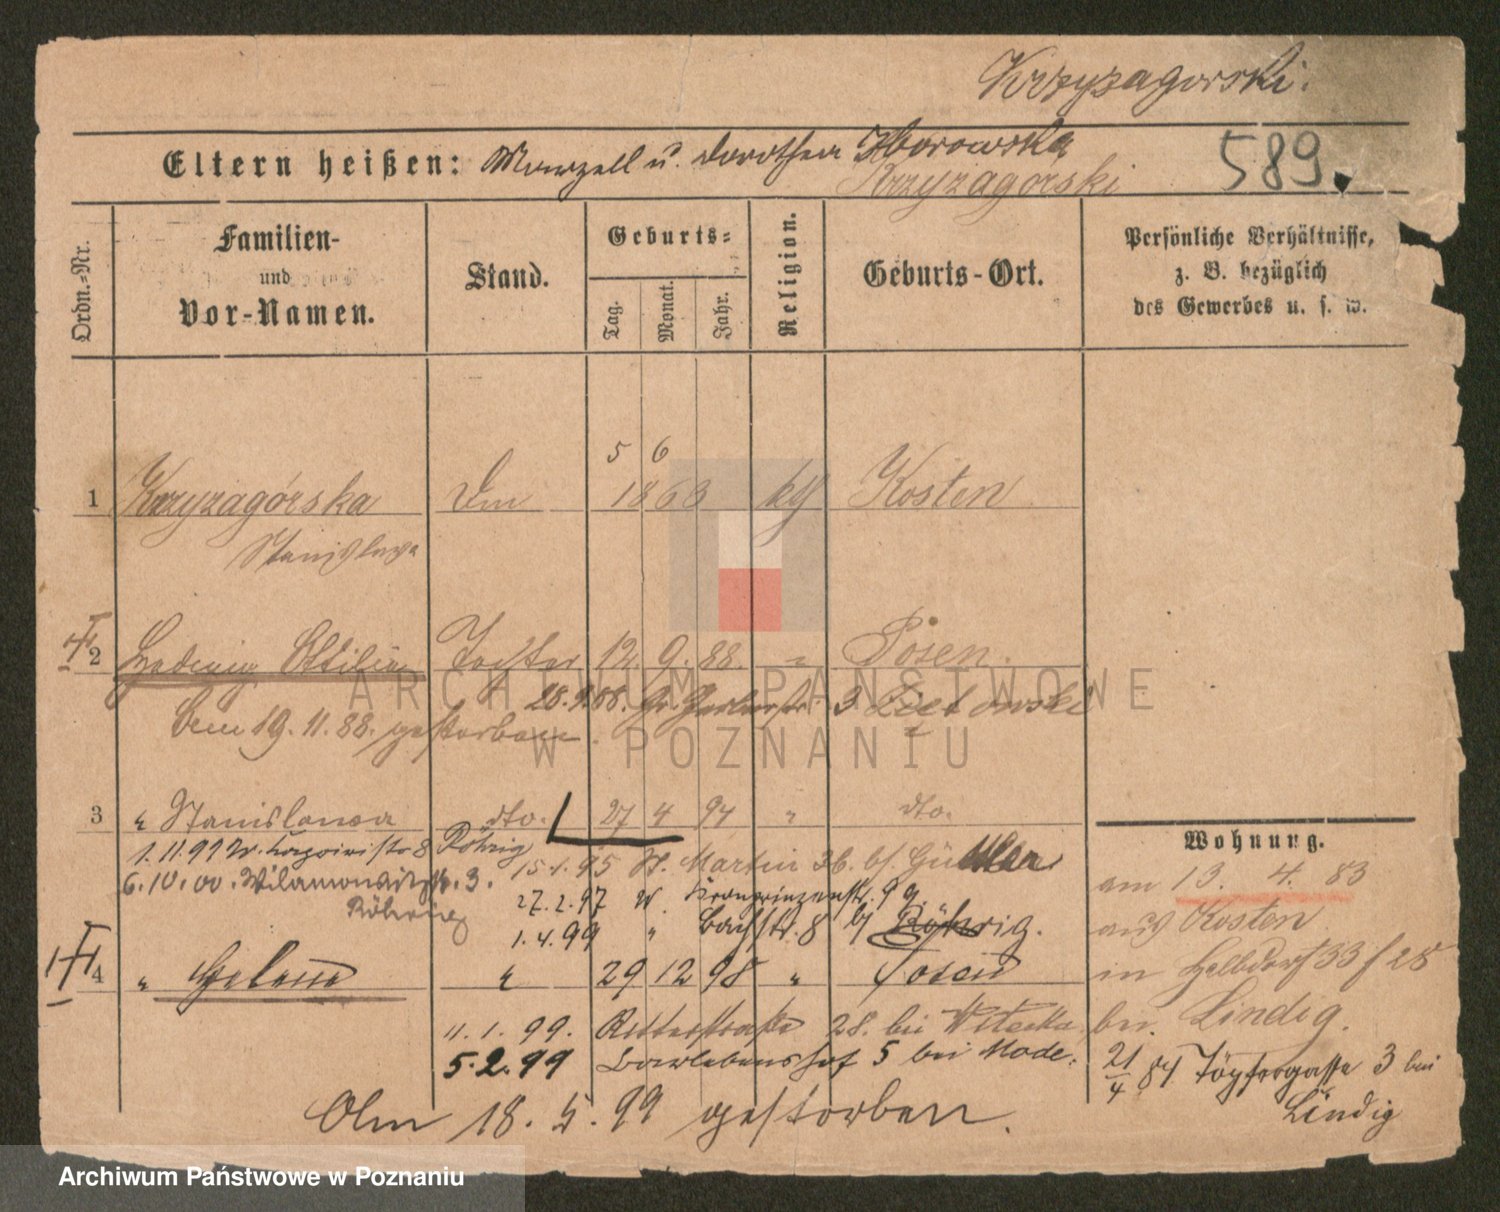 Krzyzagorski.
Eltern heißen: Marzell u. Dorothea Zborowska
Krzyzagorski
589.
Ordn.-Nr.
Familien-
und
Vor-Namen.
Stand.
Geburts-
Tag.
Monat.
Jahr.
Religion.
Geburts-Ort.
Persönliche Verhältnisse,
z. B. bezüglich
des Gewerbes u. s. w.
5 6
1 Krzyzagórska 1863 kg Kosten
Stanislawa
2 Hedwig Ottilie Tochter 12. 9. 88. " Posen.
28.9.88. Gr Gerberstr. 3
Dem 19. 11. 88. gestorben.
3 " Stanislawa dto. 27 4 94 " dto.
Röhrig
15.1.95 St. Martin 36. bei
6.10.00. 3.
Röhrig
27.2.97 Kronprinzenstr. 99.
1.4.99 " Bachstr. 8 bj Röhrig.
4 " Helene " 29 12 98 " Posen
11. 1. 99. Ritterstraße 28. bei Witecka
5.2.99 5 bei Mode.
Am 18. 5. 99 gestorben.
Wohnung.
am 13. 4. 83
aus Kosten
in Halbdorfst 33 f 28
bei Lindig.
21/4 84 Töpfergasse 3 bei
Lindig
ARCHIWUM PAŃSTWOWE
W POZNANIU
Archiwum Państwowe w Poznaniu